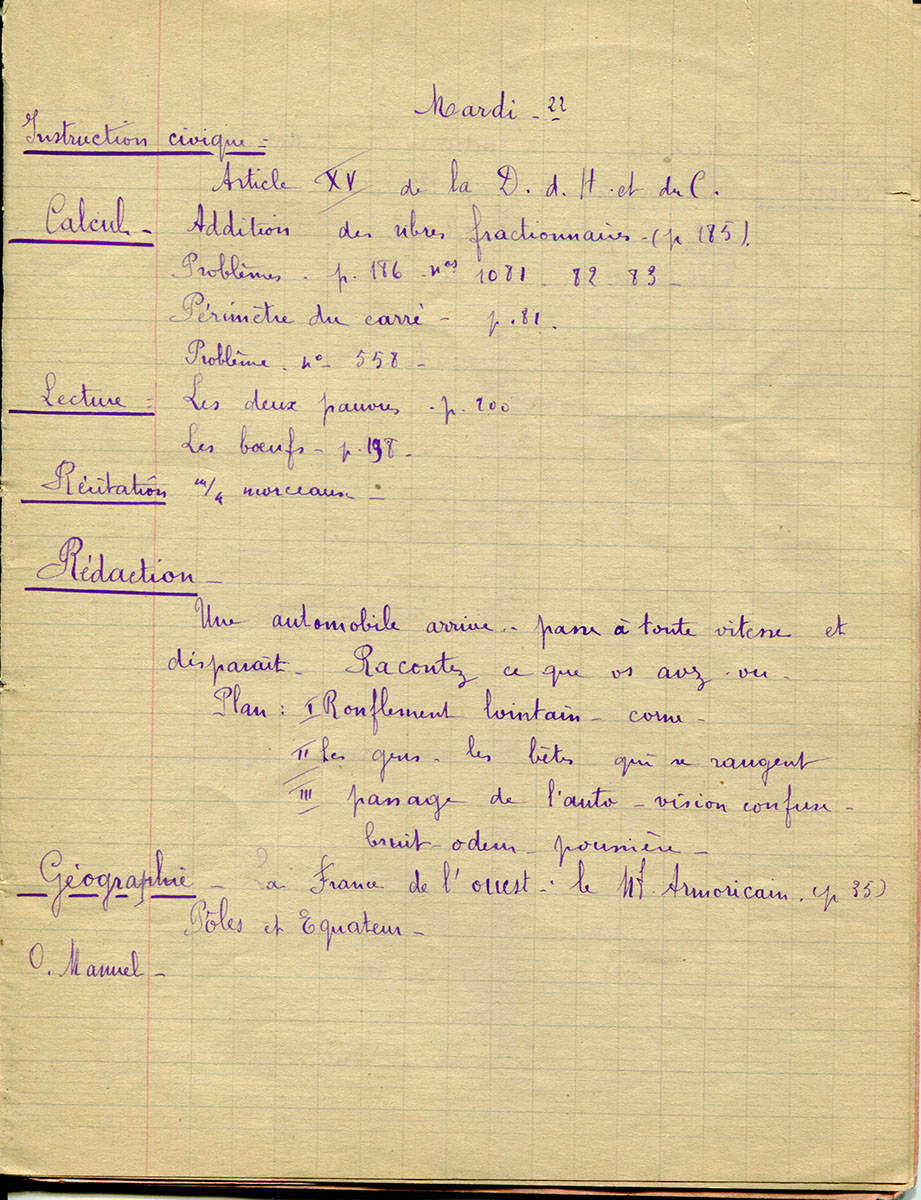 Mardi - 22
Instruction civique =
Article XV de la D. d. H. et du C.
Calcul - Addition des nbres fractionnaires - (p 185).
Problèmes - p. 186 - nos 1081 - 82 - 83 -
Périmètre du carré - p. 81.
Problème - no 558 -
Lecture = Les deux pauvres - p. 200
Les bœufs - p. 198 -
Récitation morceaux -
Rédaction -
Une automobile arrive - passe à toute vitesse et
disparaît - Racontez ce que vs avez vu -
Plan : I Ronflement lointain - corne -
II Les gens - les bêtes qui se rangent
III passage de l'auto - vision confuse -
bruit - odeur - poussière -
Géographie - La France de l'ouest : le Mf Armoricain. (p 35)
Pôles et Equateur -
O. Manuel -